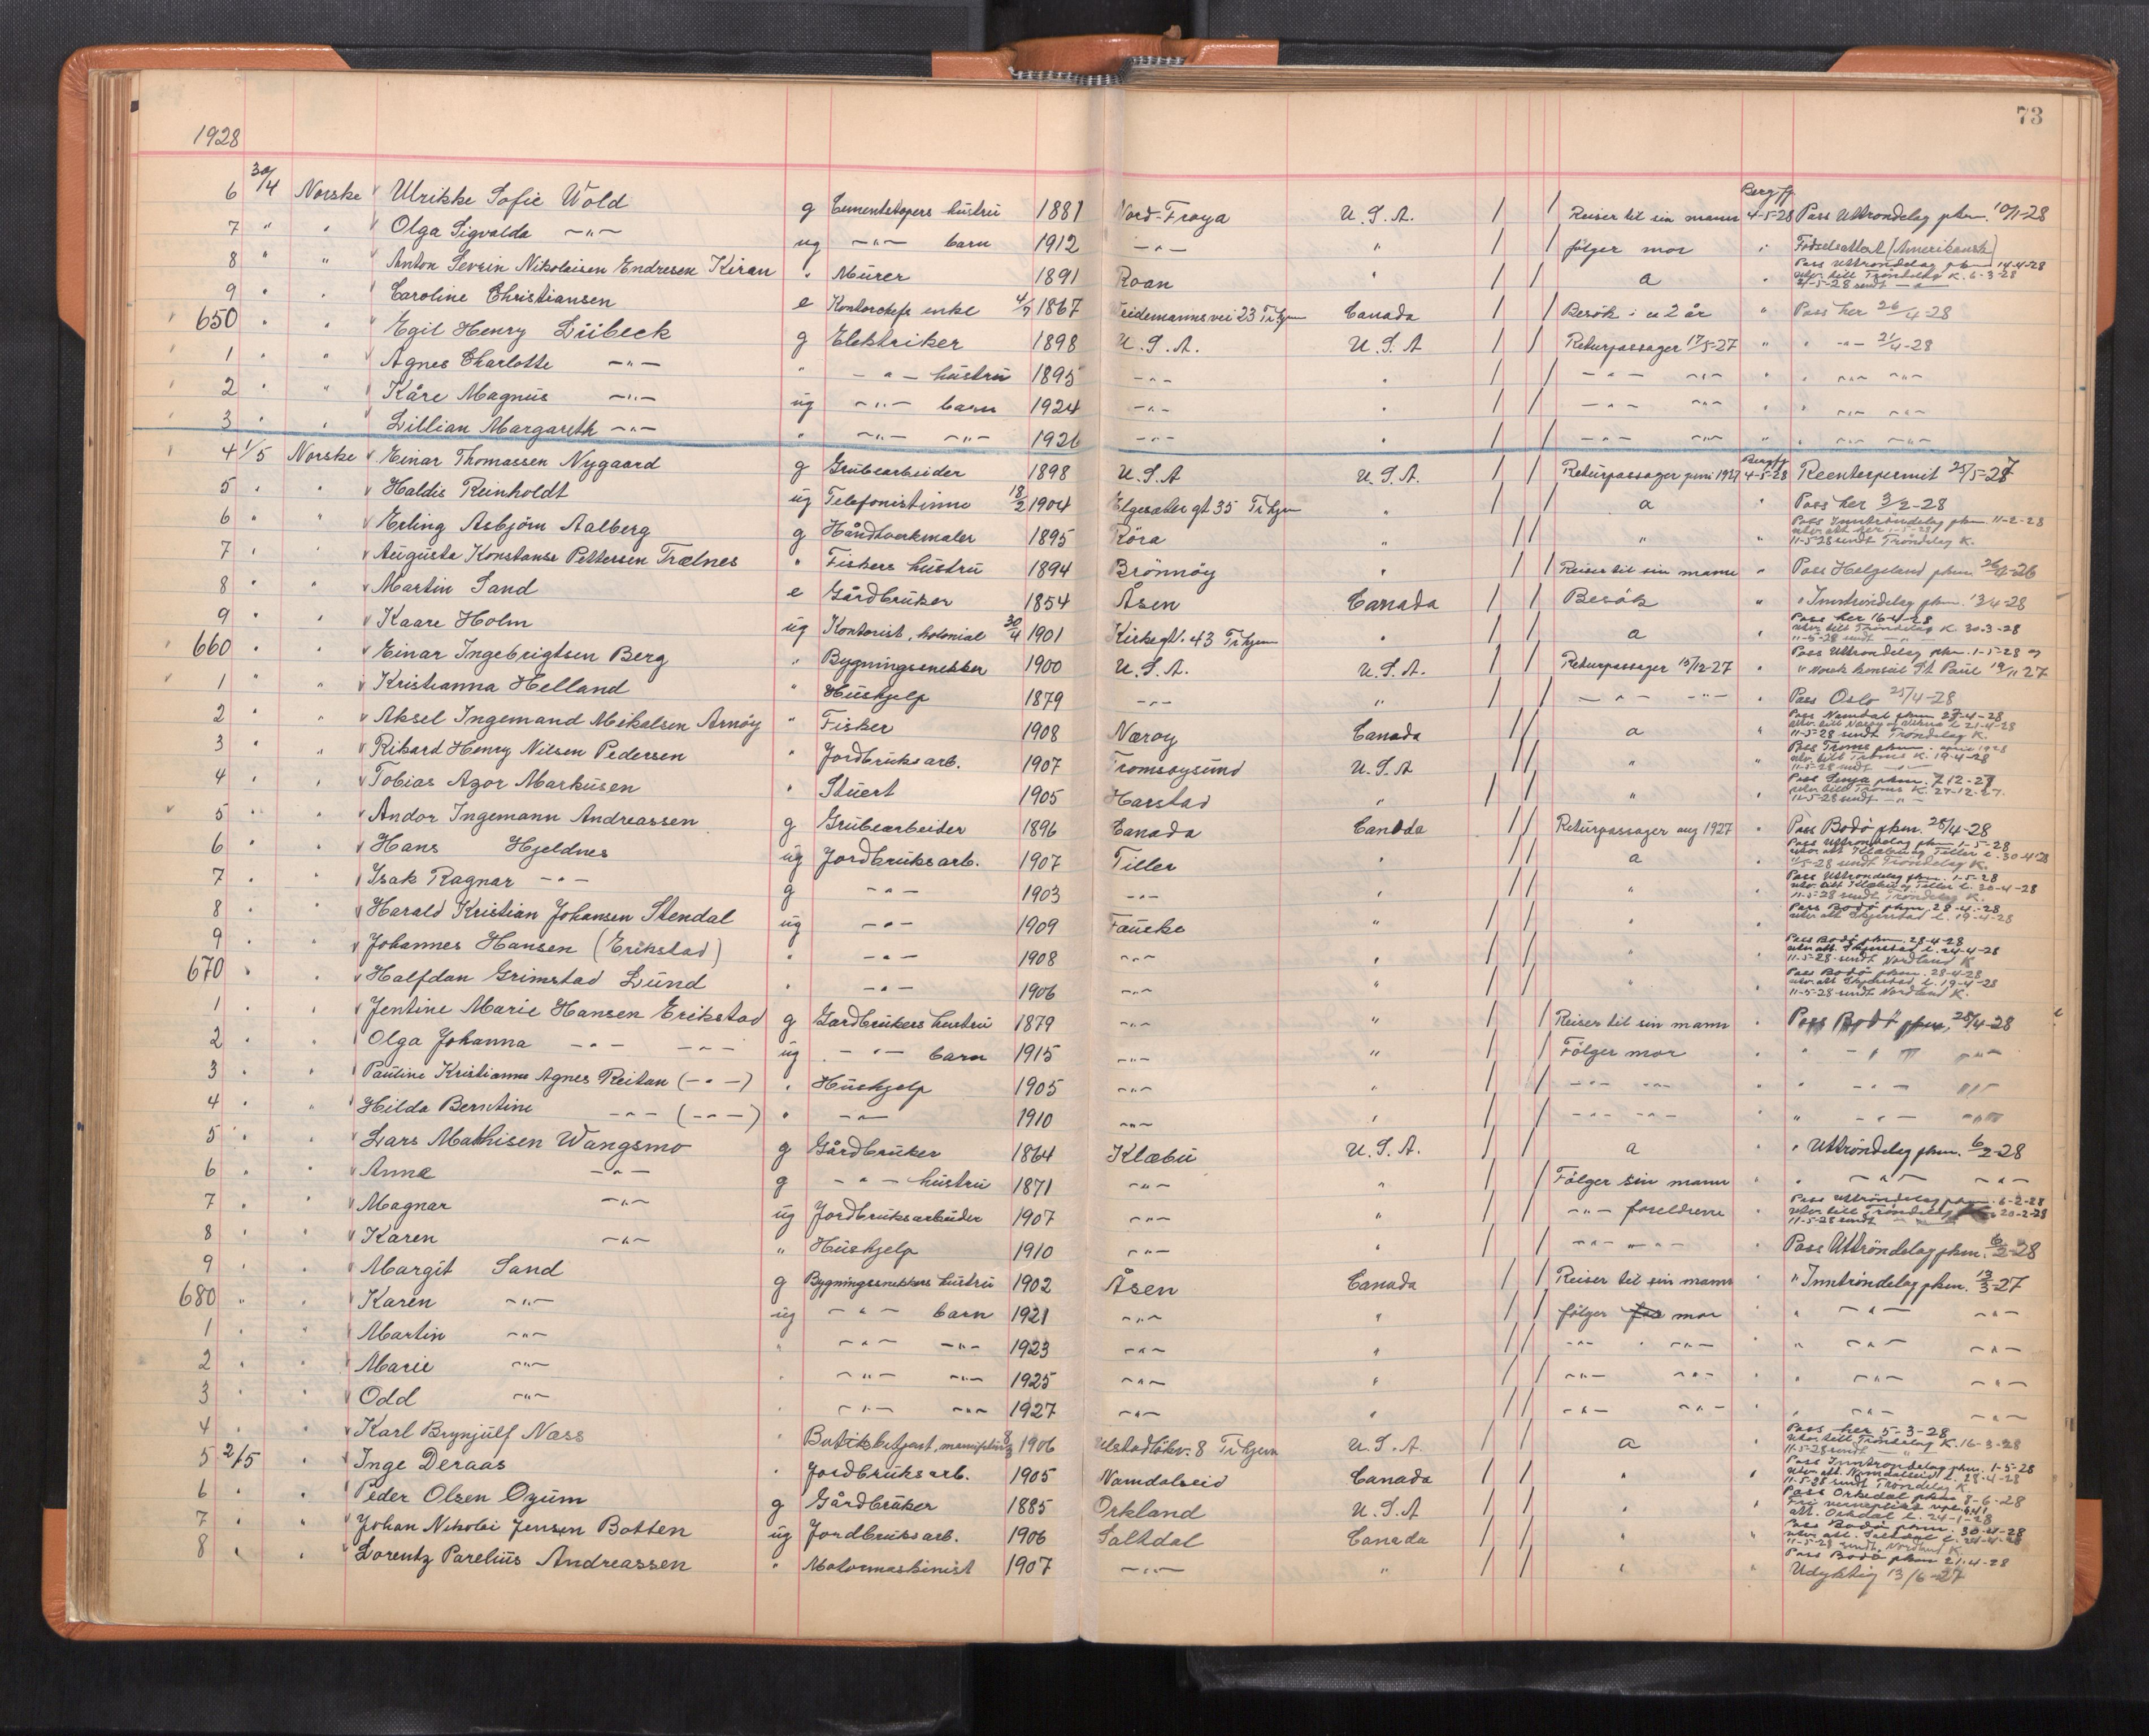 73
1928
6 30/4 Norske Ulrikke Sofie Wold g Cementstøpers hustru 1881 Nord-Frøya U.S.A. / / Reiser til sin mann Bergfj 4-5-28 Pass Uttrondelag pkm. 10/1-28
7 " " Olga Sigvalda -"- ug -"- barn 1912 -"- " / / følger mor " Fødselsattest (Amerikansk)
8 " " Anton Sevrin Nikolaisen Endresen Kiran " Murer 1891 Roan " / / a " Pass Uttrondelag pkm 14-4-28 utvr. till Trøndelag K. 6-3-28 4-5-28 sendt -"-
9 " " Caroline Christiansen e Kontorchefs enke 4/7 1867 Weidemannsvei 23 Tr.hjem Canada / / Besøk i ca 2 år " Pass her 26/4-28
650 " " Egil Henry Lübeck g Elektriker 1898 U.S.A. U.S.A / / Returpassager 17/5-27 " " -"- 21/4-28
1 " " Agnes Charlotte -"- " -"- hustru 1895 -"- " / / -"- -"- " " -"- -"-
2 " " Kåre Magnus -"- ug -"- barn 1924 -"- " / / -"- -"- " " -"- -"-
3 " " Lillian Margareth -"- " -"- -"- 1926 -"- " / / -"- -"- " " -"- -"-
4 1/5 Norske Einar Thomassen Nygaard g Grubearbeider 1898 U.S.A U.S.A. / / Returpassager juni 1927 Bergfj 4-5-28 Reenterpermit 25/5-27
5 " " Haldis Reinholdt ug Telefonistinne 18/2 1904 Elgesæter gt 35 Tr.hjem " / / a " Pass her 3/2-28
6 " " Erling Asbjørn Aalberg g Håndtverkmaler 1895 Röra " / / " " Pass Inntrøndelag pkm 11-2-28 utvr att her 1-5-28 11-5-28 sendt Trøndelag K.
7 " " Augusta Konstanse Pettersen Trælnes " Fiskers hustru 1894 Brönnöy " / / Reiser til sin mann " Pass Helgeland pkm 26/4-26
8 " " Martin Sand e Gårdbruker 1854 Åsen Canada / / Besök " " Inntröndelag pkm. 13/4-28
9 " " Kaare Holm ug Kontorist, kolonial 30/4 1901 Kirkegt. 43 Tr.hjem " / / a " Pass her 16-4-28 utvr till Trøndelag K. 30-3-28 11-5-28 sendt -"-
660 " " Einar Ingebrigtsen Berg " Bygningssnekker 1900 U.S.A. U.S.A. / / Returpassager 15/12-27 " Pass Uttrondelag pkm. 1-5-28 og " Norsk konsul St. Paul 19/11 27
1 " " Kristianna Helland " Hushjelp 1879 -"- " / / -"- -"- " Pass Oslo 25/4-28
2 " " Aksel Ingemand Mikalsen Arnöy " Fisker 1908 Næroy Canada / / a " Pass Namdal pkm 27-4-28 21-4-28 11-5-28 sendt Trøndelag K.
3 " " Rikard Henry Nilsen Pedersen " Jordbruksarb. 1907 Tromsöysund U.S.A / / " " Pass Troms pkm. april 1928 utvr. till Troms K. 19-4-28 11-5-28 sendt -"-
4 " " Tobias Azor Markusen " Stuert 1905 Harstad " / / " " Pass Senja pkm. 7.12-27 utvr till Troms K. 27-12-27. 11-5-28 sendt -"-
5 " " Andor Ingemann Andreassen g Grubearbeider 1896 Canada Canada / / Returpassager aug 1927 " Pass Bodö pkm. 25/4-28
6 " " Hans Hjeldnes ug Jordbruksarb. 1907 Tiller " / / a " Pass Uttrondelag pkm 1-5-28 utvr. att Klæbu og Tiller l. 30-4-28 11/5-28 sendt Trøndelag K.
7 " " Isak Ragnar -"- g -"- 1903 -"- " / / " " Pass Uttrondelag pkm. 1-5-28 utvr. att Klæbu og Tiller l. 30-4-28 11-5-28 sendt Trøndelag K.
8 " " Harald Kristian Johansen Stendal ug -"- 1909 Fauske " / / " " Pass Bodö pkm 28-4-28 utvr att Skjerstad l. 19-4-28
9 " " Johannes Hansen (Erikstad) " -"- 1908 -"- " / / " " Pass Bodö pkm. 28-4-28 utvr att. Skjerstad l. 24-4-28 11-5-28 sendt Nordland K
670 " " Halfdan Grimstad Lund " -"- 1906 -"- " / / " " Pass Bodö pkm. 28-4-28 utvr att Skjerstad l. 19-4-28 11-5-28 sendt Nordland K.
1 " " Jentine Marie Hansen Erikstad g Gardbrukers hustru 1879 -"- " / / Reiser til sin mann " Pass Bodö pkm, 25/4-28
2 " " Olga Johanna -"- -"- ug -"- barn 1915 -"- " / / Fölger mor " " -"- -"-
3 " " Pauline Kristianna Agnes Reitan (-"-) " Hushjelp 1905 -"- " / / -"- -"- " " -"- -"-
4 " " Hilda Berntine -"- (-"-) " -"- 1910 -"- " / / -"- -"- " " -"- -"-
5 " " Lars Mathisen Wangsmo g Gårdbruker 1864 Klæbu U.S.A. / / a " " Uttröndelag pkm. 6/2-28
6 " " Anna -"- g -"- hustru 1871 -"- " / / Fölger sin mann " " -"- -"-
7 " " Magnar -"- ug Jordbruksarbeider 1907 -"- " / / -"- foreldrene " Pass Uttröndelag pkm. 6-2-28 utvr till Trøndelag 20-2-28 11-5-28 sendt
8 " " Karen -"- " Hushjelp 1910 -"- " / / -"- -"- " Pass Uttröndelag pkm. 6/2-28
9 " " Margit Sand g Bygningssnekkers hustru 1902 Åsen Canada / / Reiser til sin mann " " Inntröndelag pkm. 19/3-27
680 " " Karen -"- ug -"- barn 1921 -"- " / / følger mor " " -"- -"-
1 " " Martin -"- " -"- -"- 1923 -"- " / / -"- " -"- " -"- -"-
2 " " Marie -"- " -"- -"- 1925 -"- " / / -"- -"- " " -"- -"-
3 " " Odd -"- " -"- -"- 1927 -"- " / / -"- -"- " " -"- -"-
4 " " Karl Brynjulf Næss " 1906 8 Tr.hjem U.S.A. / / a " Pass her 5-3-28 utvr. till Trøndelag K. 16-3-28 11-5-28 sendt -"-
5 2/5 " Inge Deraas " Jordbruksarb. 1905 Namdalseid Canada / / " " Pass Inntrøndelag pkm. 1-5-28 utvr. att. Namdalseid l. 28-4-28 11-5-28 sendt Trøndelag K
6 " " Peder Olsen Ozum g Gårdbruker 1885 Orkland U.S.A / / " " Pass Orkedal pkm 8-6-28 att. Orkdal l. 24-1-28
7 " " Johan Nikolai Jensen Botten ug Jordbruksarb. 1906 Saltdal Canada / / " " Pass Bodö pkm. 30-4-28 utvr att. Saltdal l. 24-4-28 11-5-28 sendt. Nordland K.
8 " " Lorentz Parelius Andreassen " Motormaskinist 1907 -"- " / / " " Pass Bodö pkm 21-4-28 Udyktig 13/6-27